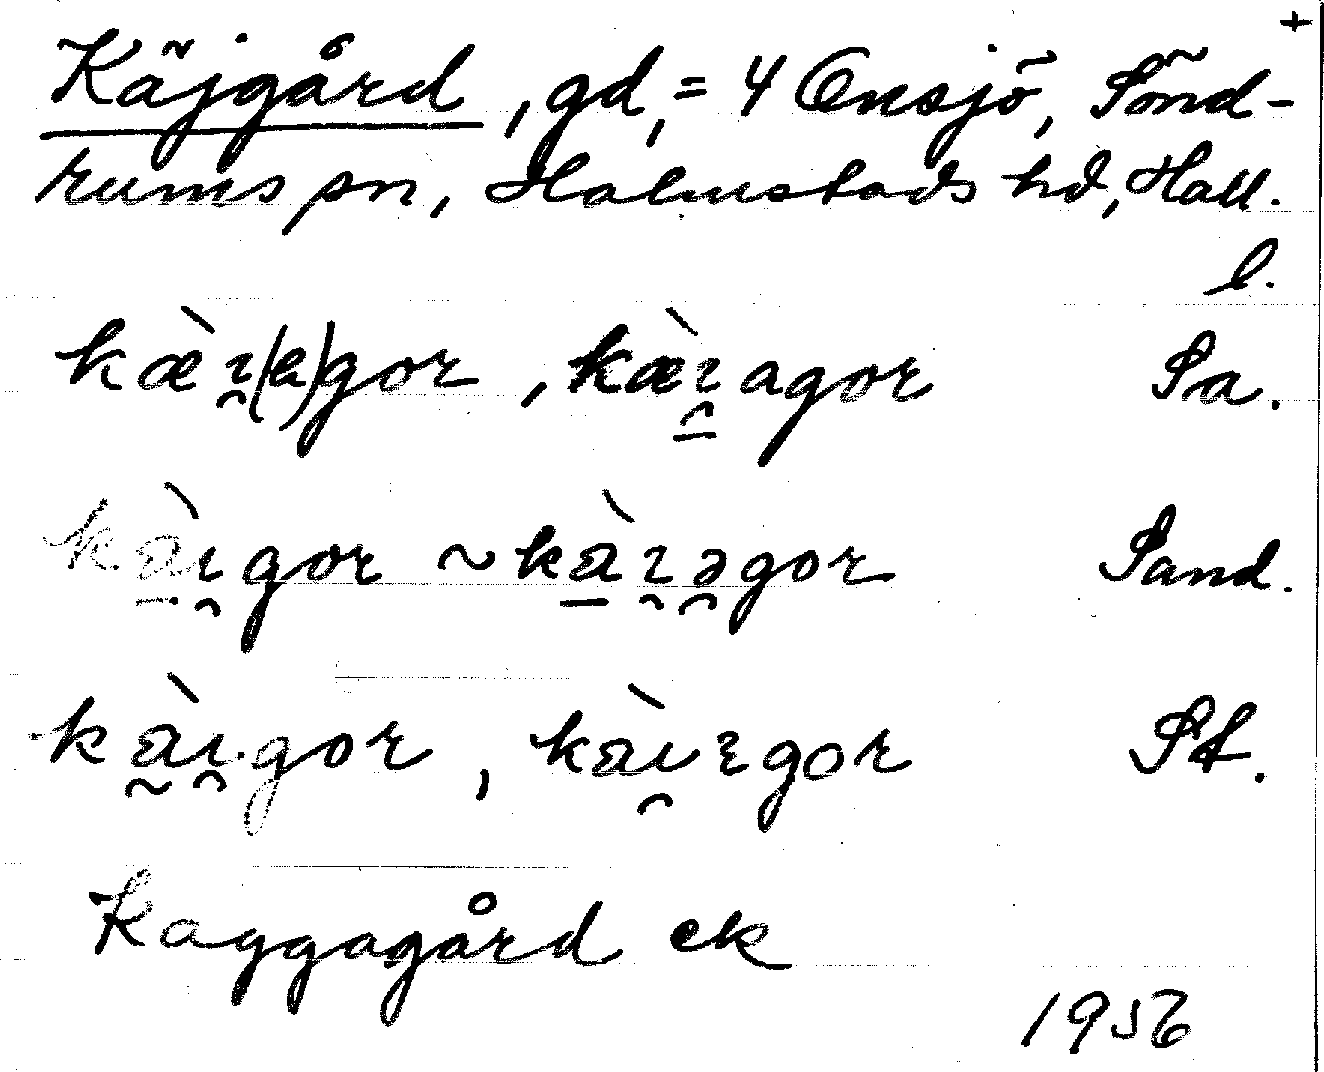 +
Käjgård, gd, = 4 Onsjö, Sönd-
rums sn, Halmstads hd, Hall.
l.
kæ̀ı̯(a)gor, kæ̀ı̯agor Sa.
kàı̯gor ~ kàı̯ə̯gor Sand.
kàı̯gor, kàı̯ıgor St.
Kaggagård ek
1956